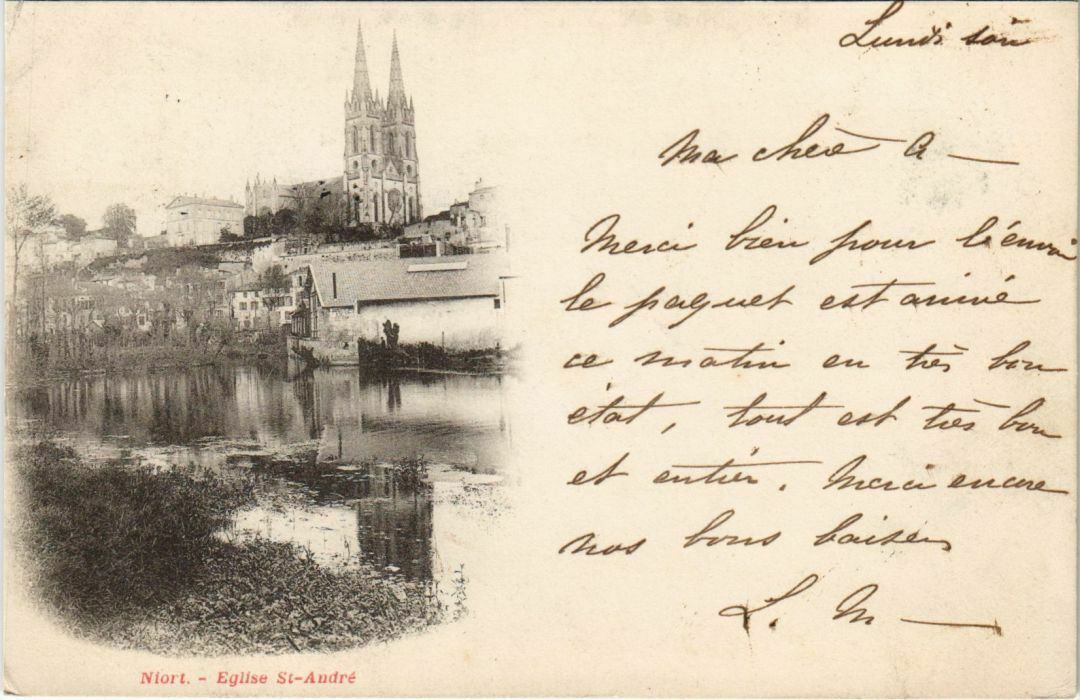 Lundi soir
Ma chère A —
Merci bien pour l'envoi
le paquet est arrivé
ce matin en très bon
état, tout est très bon
et entier. Merci encore
nos bons baisers
L. M —
Niort. - Eglise St-André